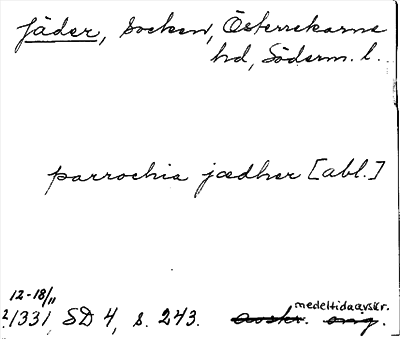 Jäder, socken, Österrekarne
hd, Söderm. l.
parrochia jædher [abl.]
12-18/11 medeltida avskr.
?1331, SD 4, s. 243. avskr. orig.